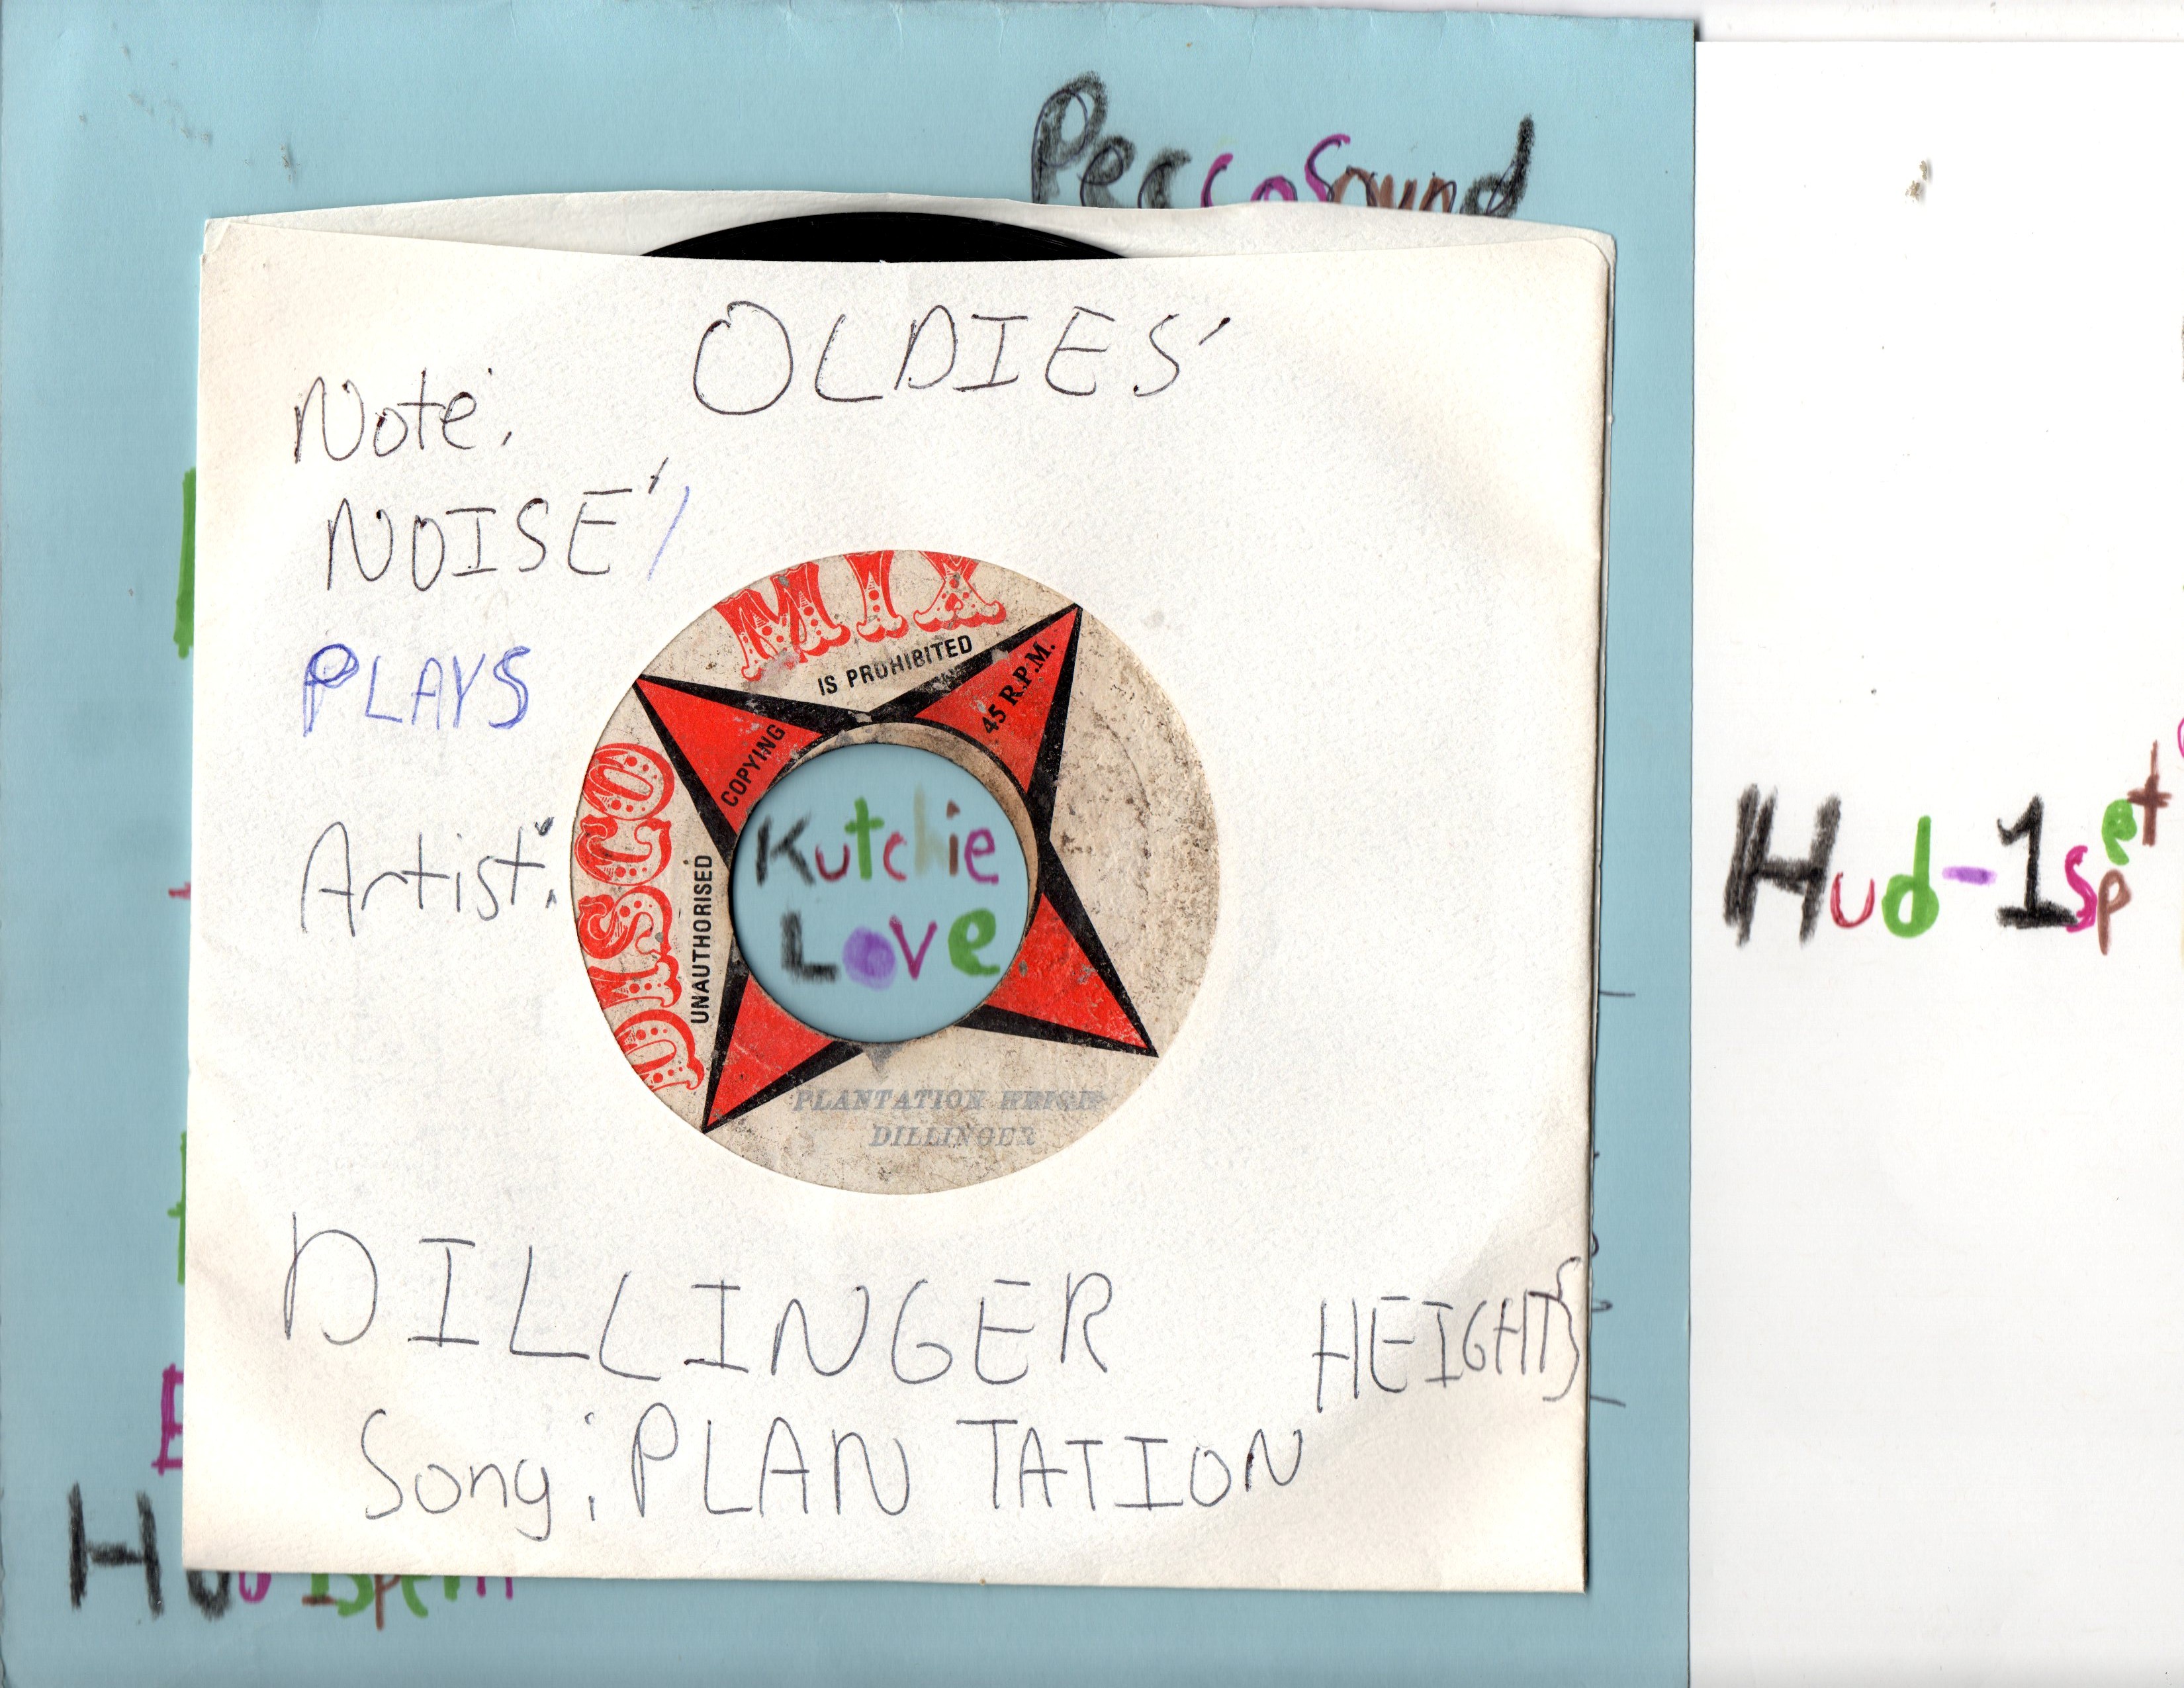 PeccoSound
OLDIES'
Note:
NOISE'/
PLAYS
Artist:
DISCO MIX
UNAUTHORISED COPYING IS PROHIBITED
45 R.P.M.
Kutchie
Love
PLANTATION
DILLINGER
DILLINGER
HEIGHTS
Song: PLAN TATION
Hud-1sp et